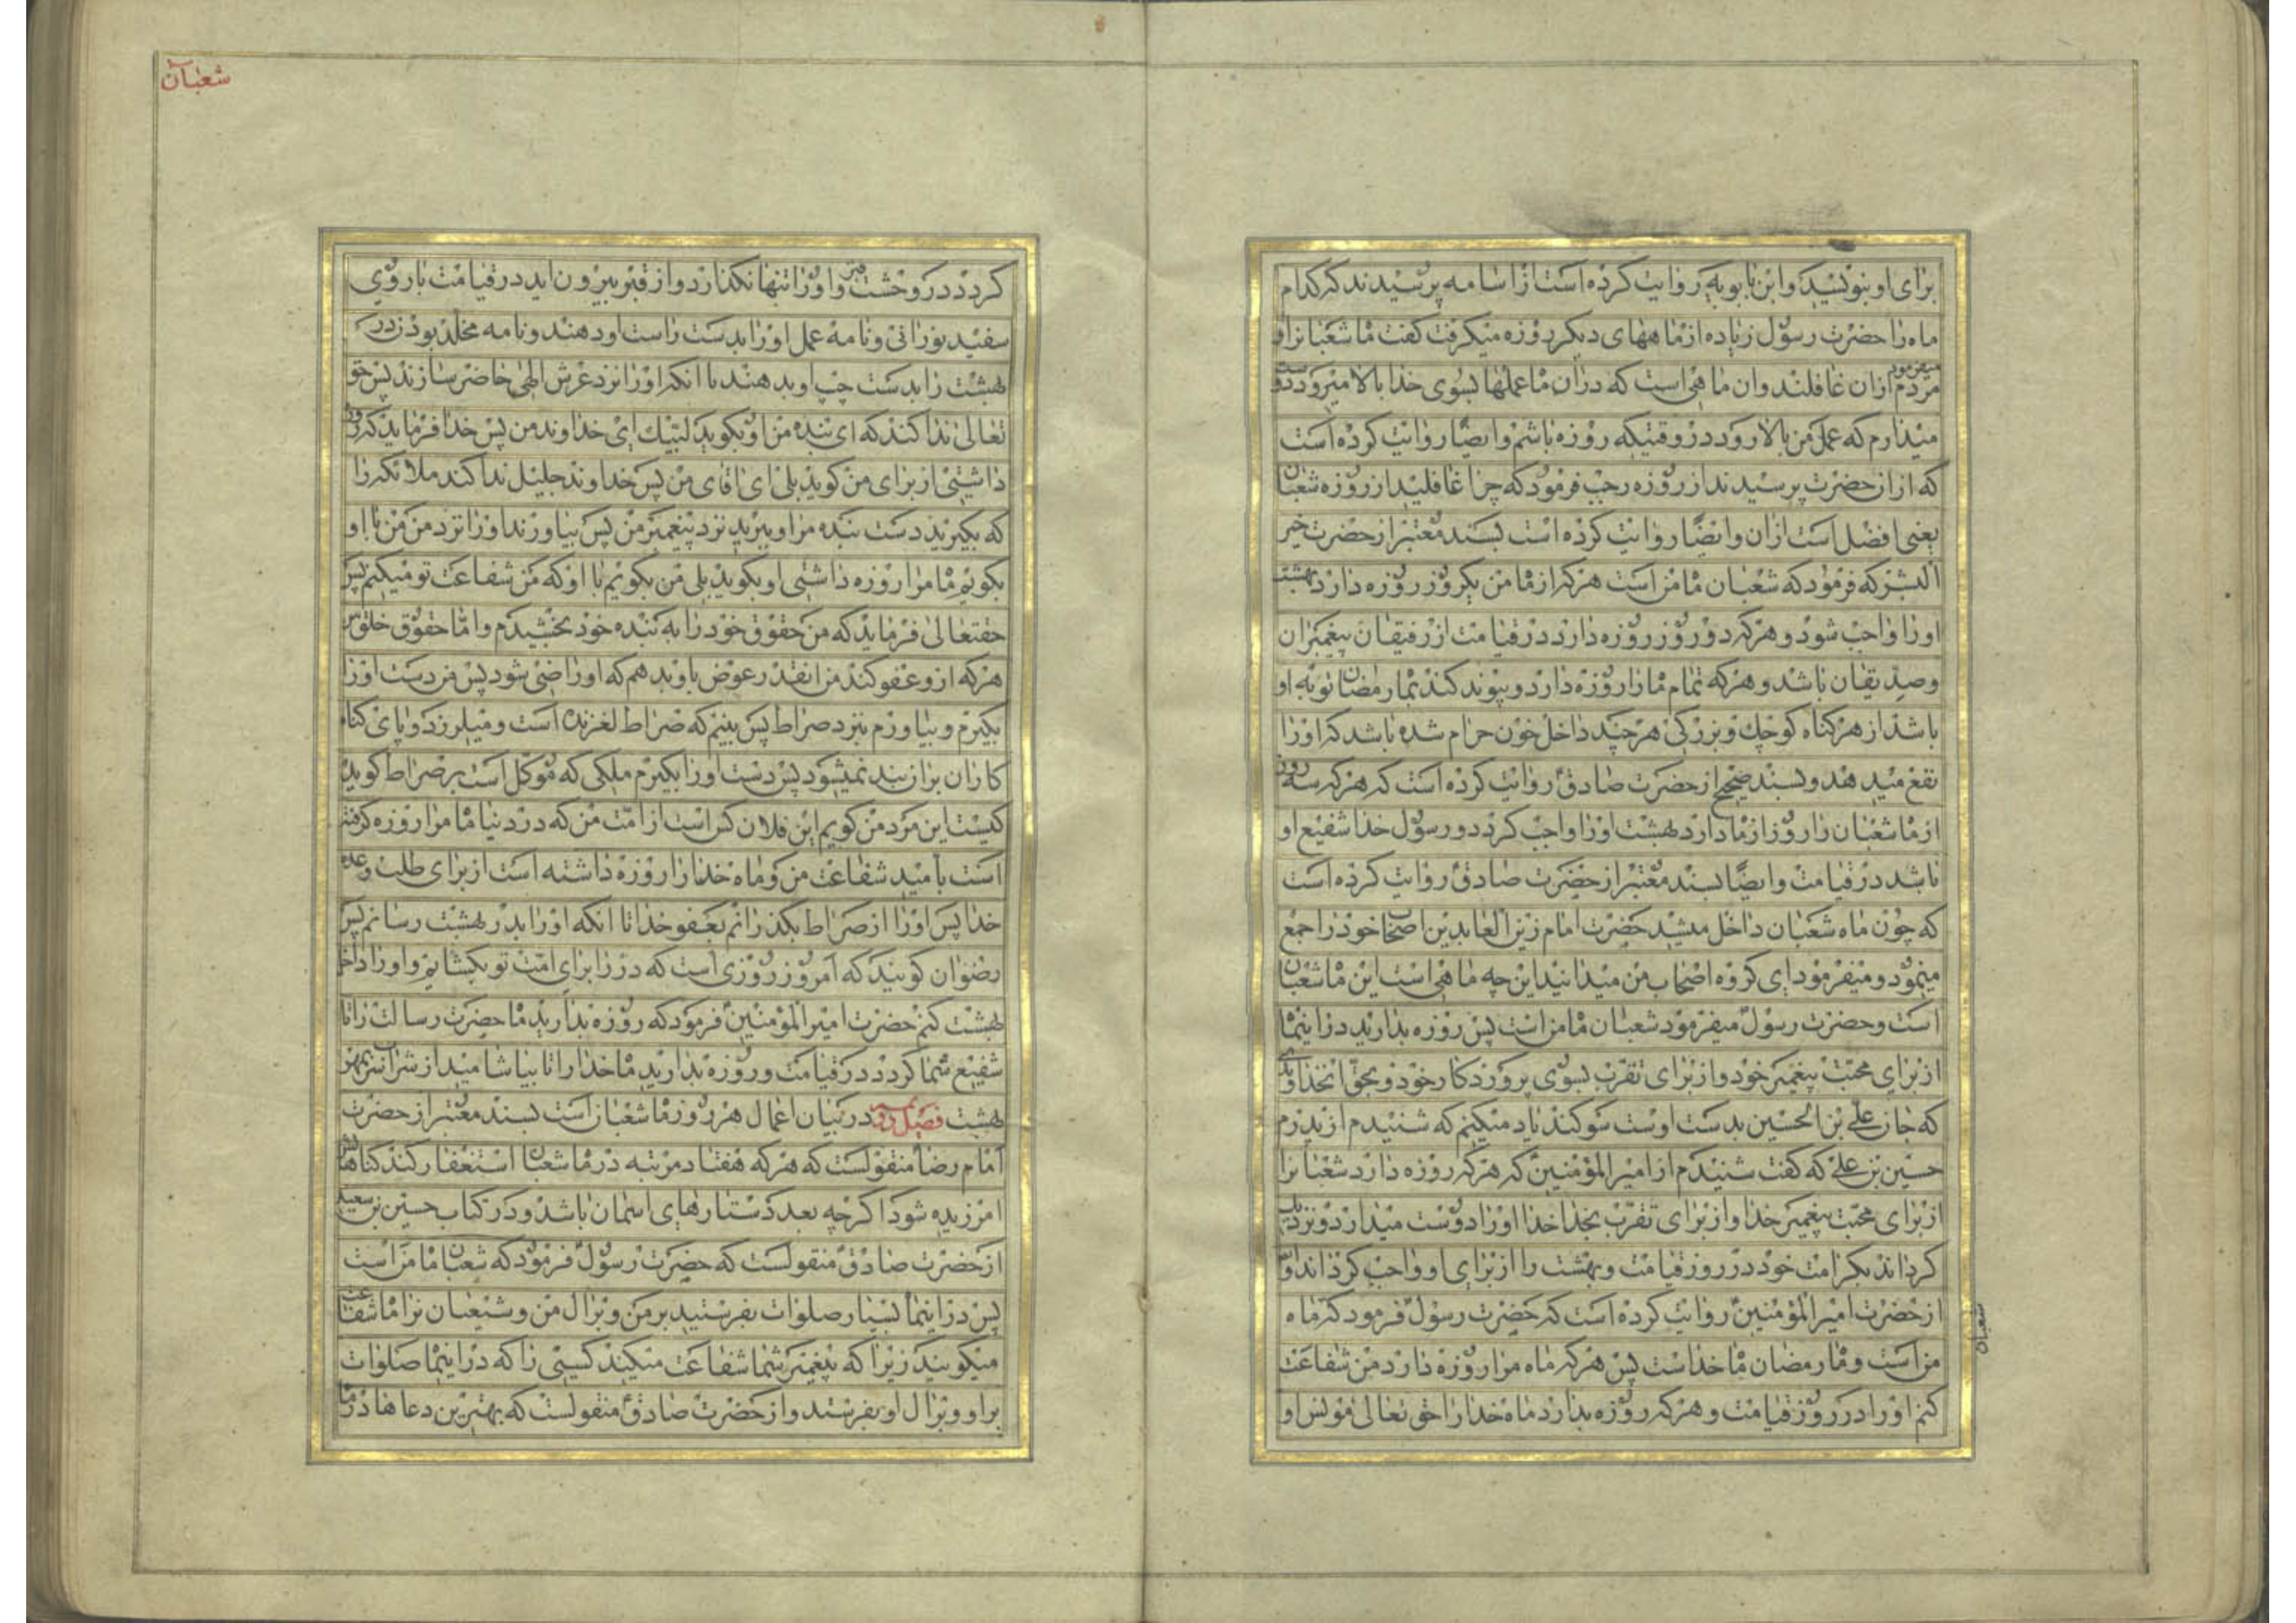 برای او بنویسید و ابن بابویه روایت کرده است از اسامه پرسیدند که کدام
ماه را حضرت رسول زیاده از ماههای دیکر روزه میکرفت کفت ماه شعبانرا و میفرمود
مردم ازان غافلند وان ماهی است که دران ماه عملها بسوی خدا بالا میرود و دوست
میدارم که عمل من بالا رود در وقتیکه روزه باشم و ایضا روایت کرده است
که ازان حضرت پرسیدند از روزه رجب فرمود که چرا غافلید از روزه شعبان
یعنی افضل است ازان و ایضا روایت کرده است بسند معتبر از حضرت خیر
البشر که فرمود که شعبان ماه من است هرکه از ماه من یکروز روزه دارد بهشت
او را واجب شود و هرکه دو روز روزه دارد در قیامت از رفیقان پیغمبران
و صدیقان باشد و هرکه تمام ماه را روزه دارد و پیوند کند بماه رمضان توبه او
باشد از هر کناه کوچک و بزرکی هرچند داخل خون حرام شده باشد که او را
نفع میدهد و بسند صحیح از حضرت صادق روایت کرده است که هرکه سه روز
از ماه شعبان را روزه دارد بهشت او را واجب کردد و رسول خدا شفیع او
باشد در قیامت و ایضا بسند معتبر از حضرت صادق روایت کرده است
که چون ماه شعبان داخل میشد حضرت امام زین العابدین اصحاب خود را جمع
مینمود و میفرمود ای کروه اصحاب من میدانید این چه ماهی است این ماه شعبان
است و حضرت رسول میفرمود شعبان ماه من است پس روزه بدارید در اینماه
از برای محبت پیغمبر خود و از برای تقرب بسوی پروردکار خود و بحق انخداوندی
که جان علی بن الحسین بدست اوست سوکند یاد میکنم که شنیدم از پدرم
حسین بن علی که کفت شنیدم از امیرالمؤمنین که هرکه روزه دارد شعبانرا
از برای محبت پیغمبر خدا و از برای تقرب بخدا خدا او را دوست میدارد و نزدیک
کرداند بکرامت خود در روز قیامت و بهشت را از برای او واجب کرداند و
از حضرت امیرالمؤمنین روایت کرده است که حضرت رسول فرمود که ماه
شعبان
من است و ماه رمضان ماه خداست پس هرکه ماه مرا روزه دارد من شفاعت
کنم او را در روز قیامت و هرکه روزه بدارد ماه خدا را حق تعالی مونس او
شعبان
کردد در وحشت قبر و او را تنها نکذارد و از قبر بیرون اید در قیامت با روی
سفید نورانی و نامه عمل او را بدست راست او دهند و نامه مخلد بودن در
بهشت را بدست چپ او بدهند تا انکه او را نزد عرش الهی حاضر سازند پس حق
تعالی ندا کند که ای بنده من او بکوید لبیک ای خداوند من پس خدا فرماید که روزه
داشتی از برای من کوید بلی ای اقای من پس خداوند جلیل ندا کند ملائکه را
که بکیرید دست بنده مرا و ببرید نزد پیغمبر من پس بیاورند او را نزد من من با او
بکویم ماه مرا روزه داشتی او بکوید بلی من بکویم با او که من شفاعت تو میکنم پس
حقتعالی فرماید که من حقوق خود را به بنده خود بخشیدم و اما حقوق خلق من
هرکه ازو عفو کند من انقدر عوض باو بدهم که او راضی شود پس من دست او را
بکیرم و بیاورم بنزد صراط پس بینم که صراط لغزنده است و میلرزد و پای کناه
کاران بران بند نمیشود پس دست او را بکیرم ملکی که موکل است بر صراط کوید
کیست این مرد من کویم این فلان کس است از امت من که در دنیا ماه مرا روزه کرفته
است بامید شفاعت من و ماه خدا را روزه داشته است از برای طلب وعده
خدا پس او را از صراط بکذرانم بعفو خدا تا انکه او را بدر بهشت رسانم پس
رضوان کوید که امروز روزی است که در را برای امت تو بکشایم و او را داخل
بهشت کنم حضرت امیرالمؤمنین فرمود که روزه بدارید ماه حضرت رسالت را تا
شفیع شما کردد در قیامت و روزه بدارید ماه خدا را تا بیاشامید از شراب سر بمهر
بهشت فصل دویم در بیان اعمال هر روز ماه شعبان است بسند معتبر از حضرت
امام رضا منقولست که هرکه هفتاد مرتبه در ماه شعبان استغفار کند کناهانش
امرزیده شود اکرچه بعدد ستارهای اسمان باشد و در کتاب حسین بن سعید
از حضرت صادق منقولست که حضرت رسول فرمود که شعبان ماه من است
پس در اینماه بسیار صلوات بفرستید بر من و بر ال من و شیعیان ترا ماه شفاعت
میکویند زیرا که پیغمبر شما شفاعت میکند کسیی را که در اینماه صلوات
بر او و بر ال او بفرستد و از حضرت صادق منقولست که بهترین دعاها در ماه